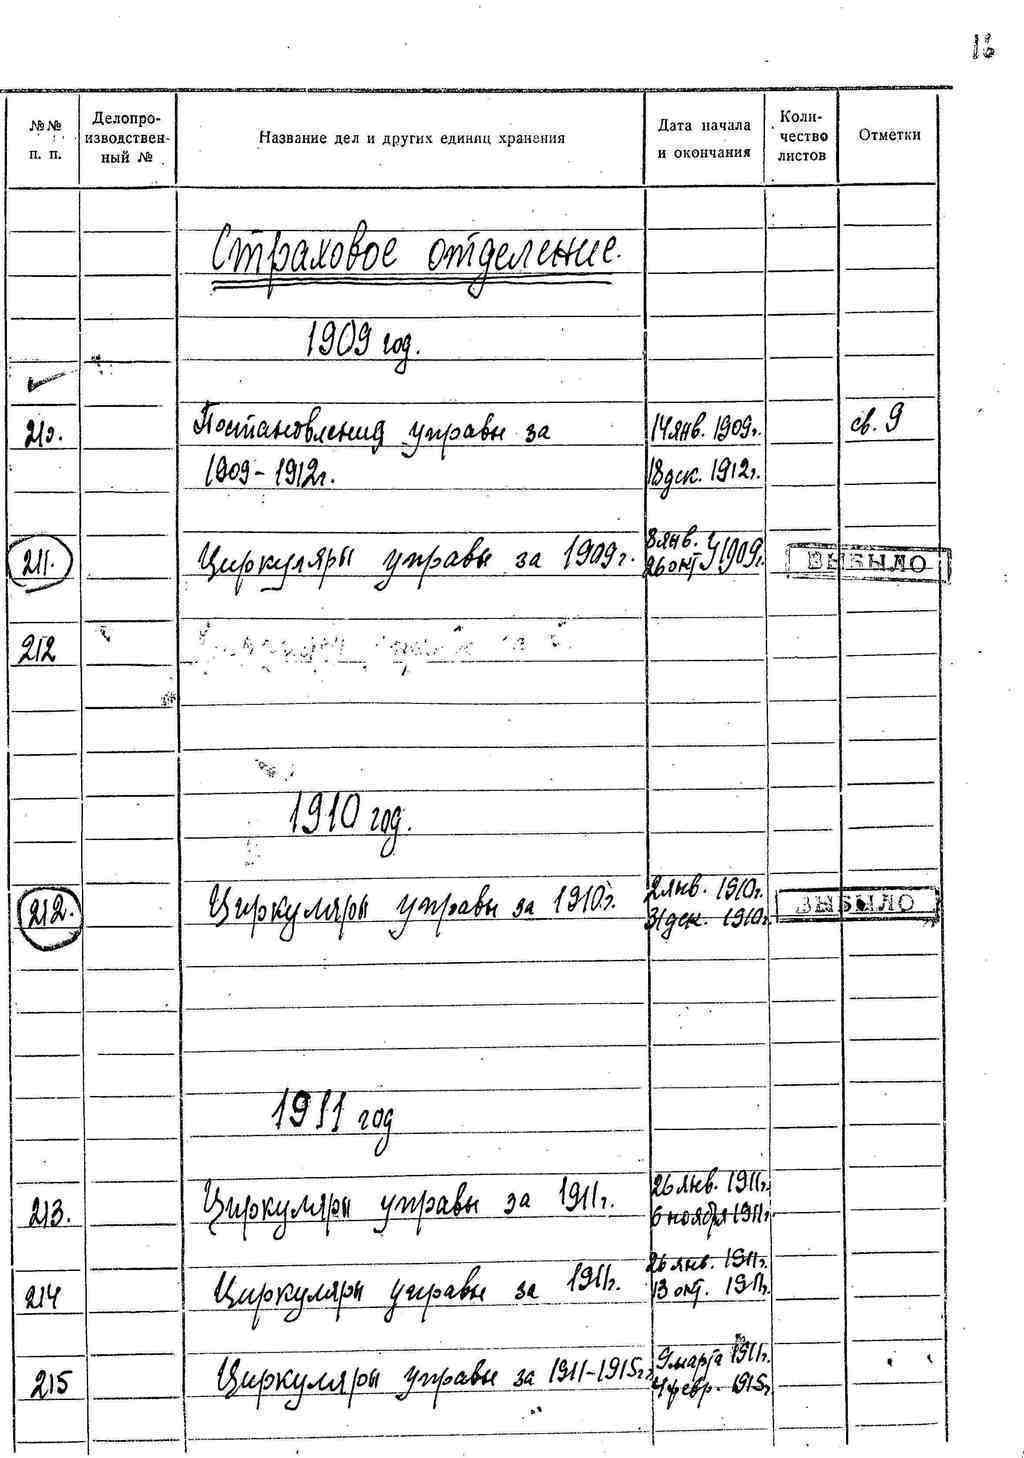 16
№№ п. п. Делопроизводственный № Название дел и других единиц хранения Дата начала и окончания Количество листов Отметки
Страховое отделение.
1909 год.
210. Постановления управы за 14 янв. 1909г. св. 9
1909-1912г. 18 дек. 1912г.
211. Циркуляры управы за 1909г. 8 янв. 26 окт } 1909г. ВЫБЫЛО
212
1910 год.
212. Циркуляры управы за 1910г. 2 янв. 1910г. 31 дек. 1910г. ВЫБЫЛО
1911 год
213. Циркуляры управы за 1911г. 26 янв. 1911г. 6 ноября 1911г
214 Циркуляры управы за 1911г. 26 янв. 1911г. 13 окт. 1911г.
215 Циркуляры управы за 1911-1915г. 9 марта 1911г. 4 февр. 1915г